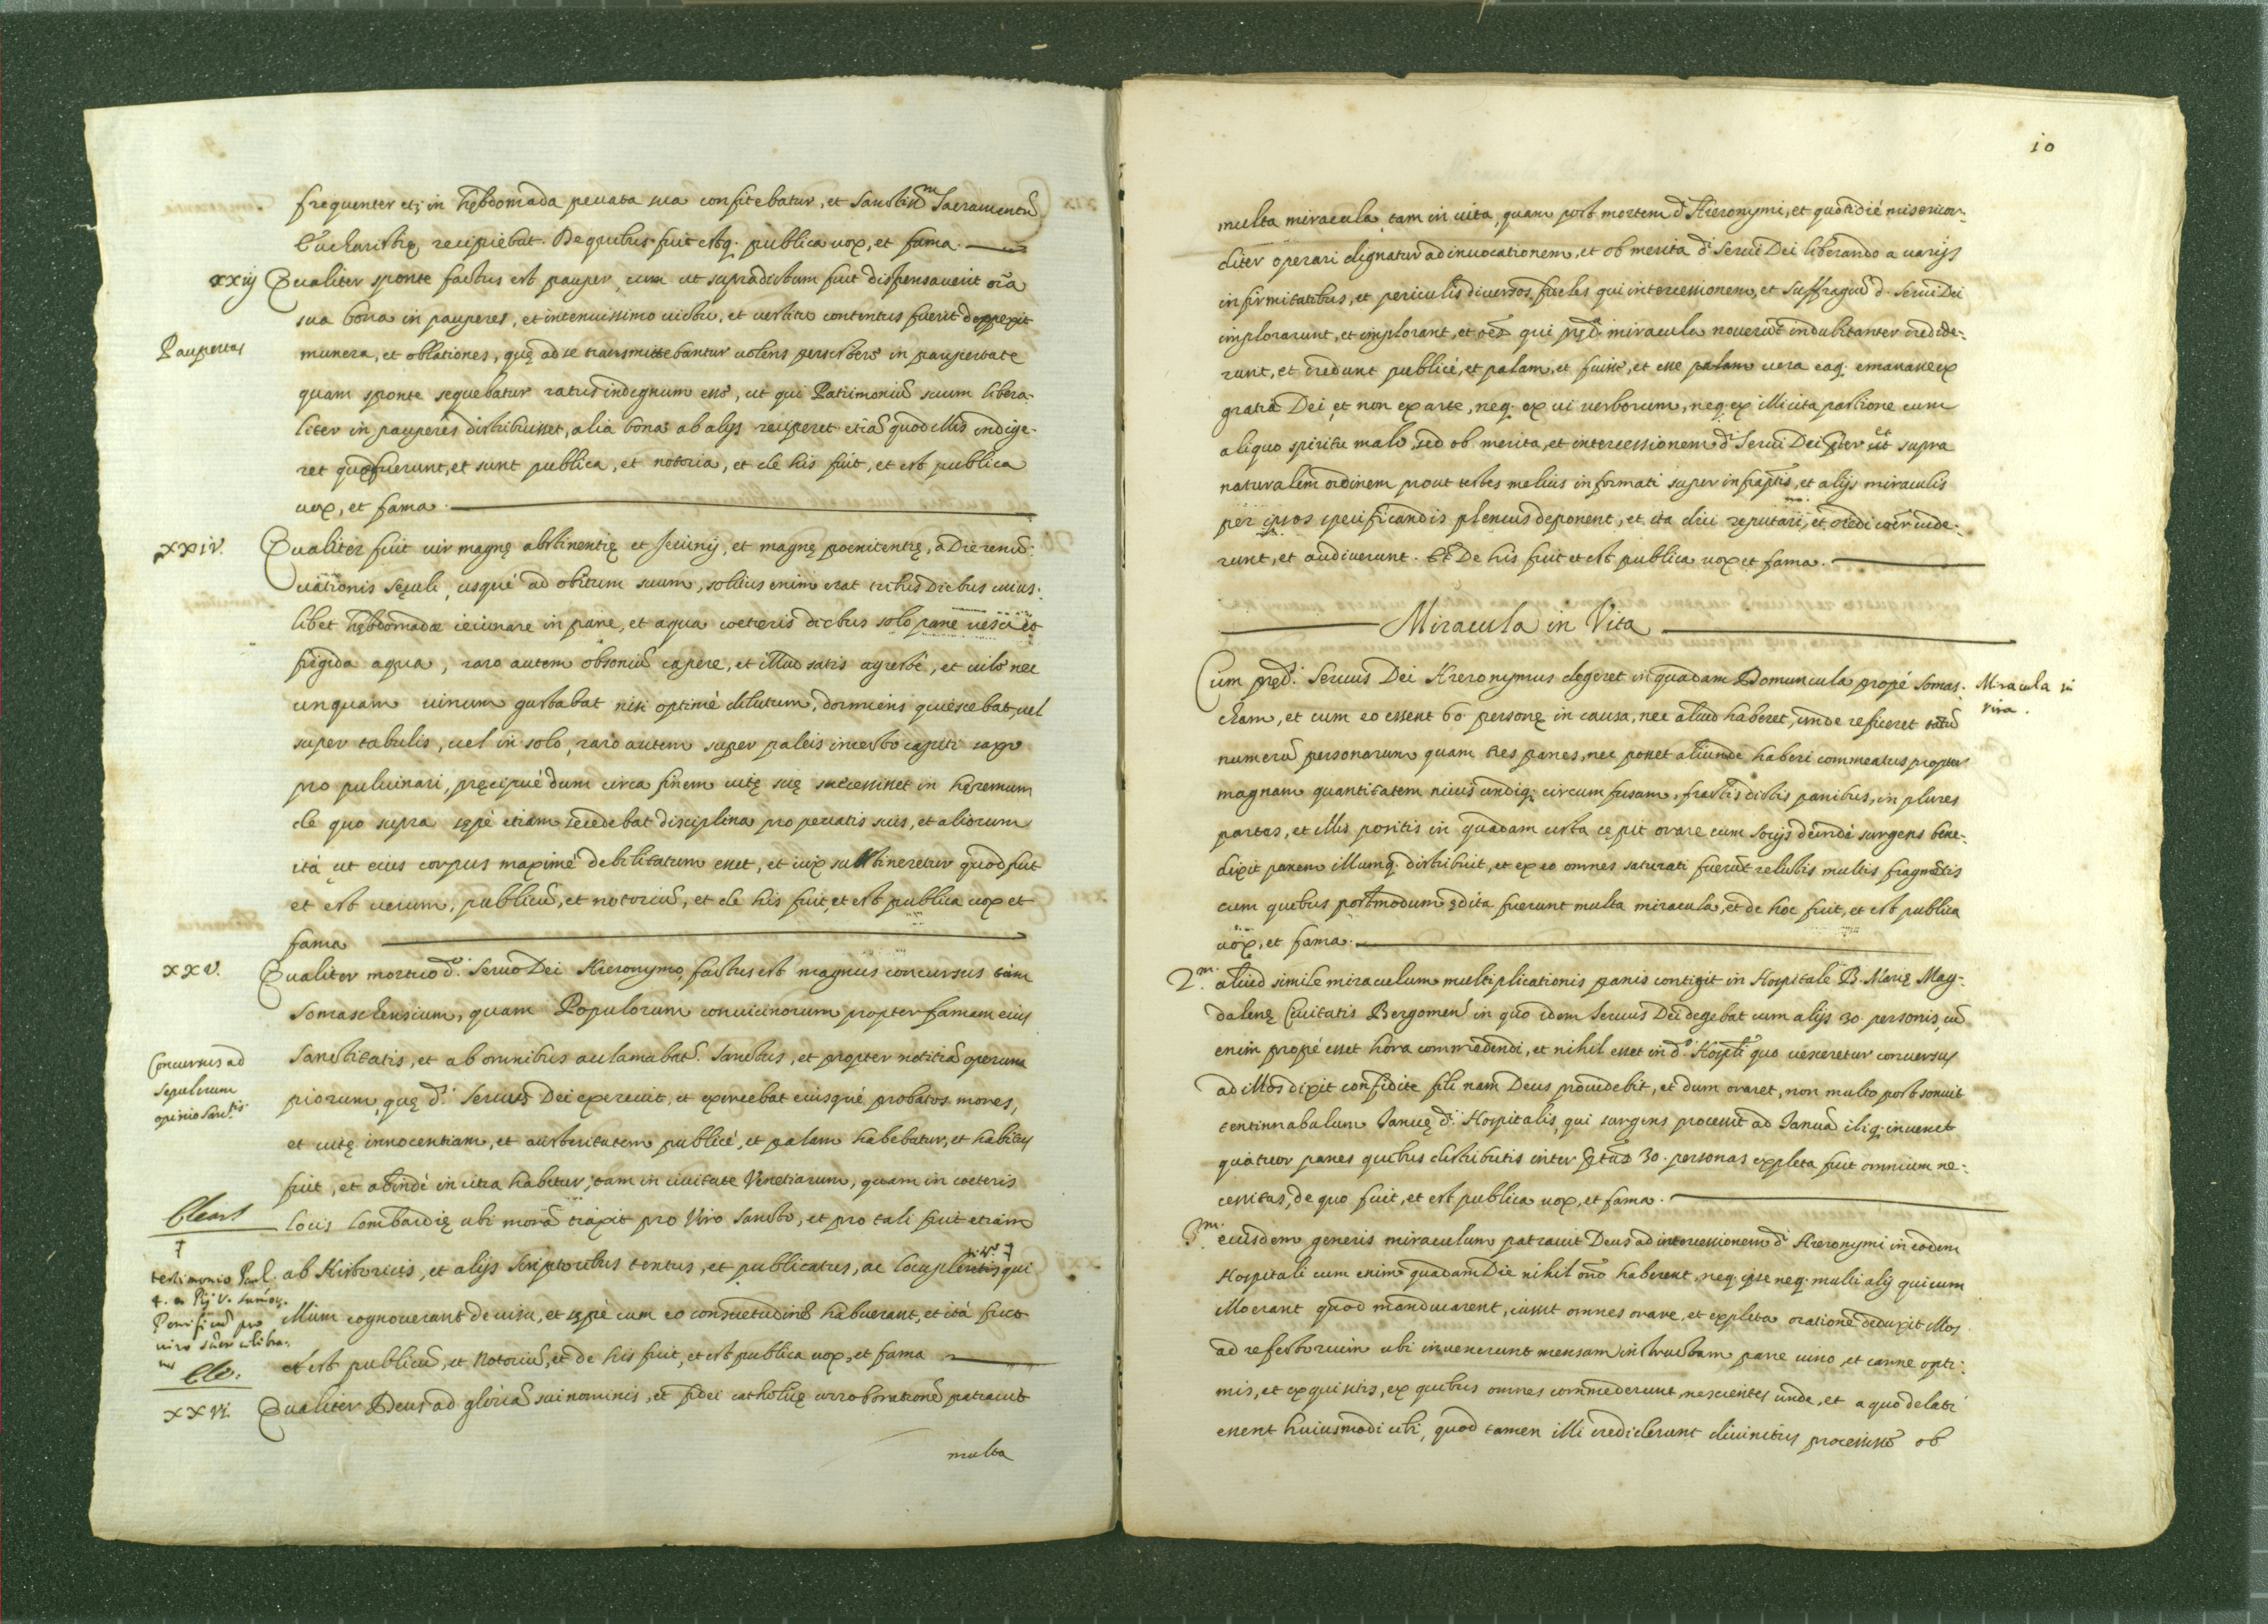 frequenter etiam in hębdomada peccata sua confitebatur, et Sanctiss.m Sacramentũ
Eucharistię recipiebat. De quibus fuit estq. publica uox, et fama.
xxiij Qualiter sponte factus est pauper, cum ut supradictum fuit dispensauerit oĩa
sua bona in pauperes, et in tenuissimo uictu, et uestitu contentus fuerit
Paupertas
munera, et oblationes, quę ad se transmittebantur uolens persistere in paupertate
quam sponte sequebatur ratus indignum esse, ut qui Patrimoniũ suum libera-
liter in pauperes distribuisset, alia bona ab alijs reciperet etiã quod illis indige-
ret quę fuerunt, et sunt publica, et notoria, et de his fuit, et est publica
uox, et fama.
xxiv. Qualiter fuit uir magnę abstinentię et Jeiunij, et magnę poenitentię, à Die renun-
ciationis Sęculi, usquè ad obitum suum, solitus enim erat tribus Diebus cuius-
libet hębdomadæ ieiunare in pane, et aqua coeteris diebus solo pane uesci et
frigida aqua, raro autem obsoniũ capere, et illud satis agreste, et uile nec
unquam uinum gustabat nisi optimè dilutum, dormiens quiescebat, uel
super tabulis, uel in solo, raro autem super paleis incerto capiti saxo
pro puluinari, pręcipuè dum circa finem uitę suę successisset in hęremum
de quo supra sępè etiam secedebat disciplina pro peccatis suis, et aliorum
ità ut eius corpus maximè debilitatum esset, et uix sustineretur quod fuit
et est uerum, publicũ, et notoriũ, et de his fuit, et est publica uox et
fama
xxv. Qualiter mortuo d.o Seruo Dei Hieronymo factus est magnus concursus tàm
Somaschensium, quam Populorum conuicinorum propter famam eius
Concursus ad
sepulcrum
opinio Sanc.tis
Sanctitatis, et ab omnibus acclamabat.r Sanctus, et propter notitiã operum
piorum, quę d.s Seruus Dei exercuit, et exercebat eiusquè probatos mores,
et uitę innocentiam, et austeritatem publicè, et palam habebatur, et habitus
fuit, et ab indè in citra habetur, tam in ciuitate Venetiarum, quam in coeteris
locis Lombardię ubi morã traxit pro Viro Sancto, et pro tali fuit etiam
ab Historicis, et alijs Scriptoribus tentus, et publicatus, ac locupletis qui
testimonio Paul.
4. et Pij V. Sumor.
Pontificũ pro
illum cognouerant de uisu, et sępè cum eo consuetudinẽ habuerant, et ità fuit
et est publicũ, et Notoriũ, et de his fuit, et est publica uox, et fama
xxvi. Qualiter Deus ad gloriã sui nominis, et fidei catholicę corroborationẽ patrauit
multa
10
multa miracula, tam in uita, quam post mortem d.i Hieronymi, et quotidiè misericor-
diter operari dignatur ad inuocationem, et ob merita d.i Serui Dei liberando a uarijs
infirmitatibus, et periculis diuersos fideles qui intercessionem, et suffragiũ d.i Serui Dei
implorarunt, et implorant, et oẽs qui pręd.a miracula nouerũt indubitanter credide-
runt, et credunt publicè, et palam, et fuisse, et esse palam uera eaq. emanasse ex
gratia Dei, et non ex arte, neq. ex ui uerborum, neq. ex illicita pactione cum
aliquo spiritu malo, sed ob merita, et intercessionem d.i Serui Dei pręter et supra
naturalem ordinem prout testes melius informati super infraptis, et alijs miraculis
per ipsos specificandis plenius deponent, et ita dici reputari, et credi uide-
runt, et audiuerunt. Et De his fuit et est publica uox et fama.
Miracula in Vita
Cum pręd.s Seruus Dei Hieronymus degeret in quadam Domuncula propè Somas-
Miracula in
vita.
cham, et cum eo essent 60 personę in causa, nec aliud haberet, unde reficeret tantũ
numerũ personarum quam tres panes, nec posset aliunde haberi commeatus propter
magnam quantitatem niuis undiq; circumfusam, fractis dictis panibus, in plures
partes, et illis positis in quadam cista cepit orare cum socijs deindè surgens bene-
dixit panem illumq. distribuit, et ex eo omnes saturati fuerũt relictis multis fragmẽtis
cum quibus postmodum ędita fuerunt multa miracula, et de hoc fuit, et est publica
uox, et fama.
2.m aliud simile miraculum multiplicationis panis contigit in Hospitale B. Marię Mag-
dalenę Ciuitatis Bergomen in quo idem Seruus Dei degebat cum alijs 30. personis, cũ
enim propè esset hora commedendi, et nihil esset in d.o Hospitli quo uesceretur conuersus
ad illos dixit confidite filij nam Deus prouidebit, et dum oraret, non multo post sonuit
tentinnabulum Januę d.i Hospitalis, qui surgens processit ad Januã ibiq. inuenit
quatuor panes quibus distributis inter 30. personas expleta fuit omnium ne-
cessitas, de quo fuit, et est publica uox, et fama.
3.m eiusdem generis miraculum patrauit Deus ad intercessionem d.i Hieronymi in eodem
Hospitali cum enim quadam Die nihil oĩno haberent, neq. ipse neq. multi alij qui cum
illo erant quod manducarent, iussit omnes orare, et expleta oratione deduxit illos
ad refectorium ubi inuenerunt mensam instructam pane uino et carne opti-
mis, et exquisitis, ex quibus omnes commederunt, nescientes unde, et a quo delati
essent huiusmodi cibi, quod tamen illi crediderunt diuinitus processisse ob